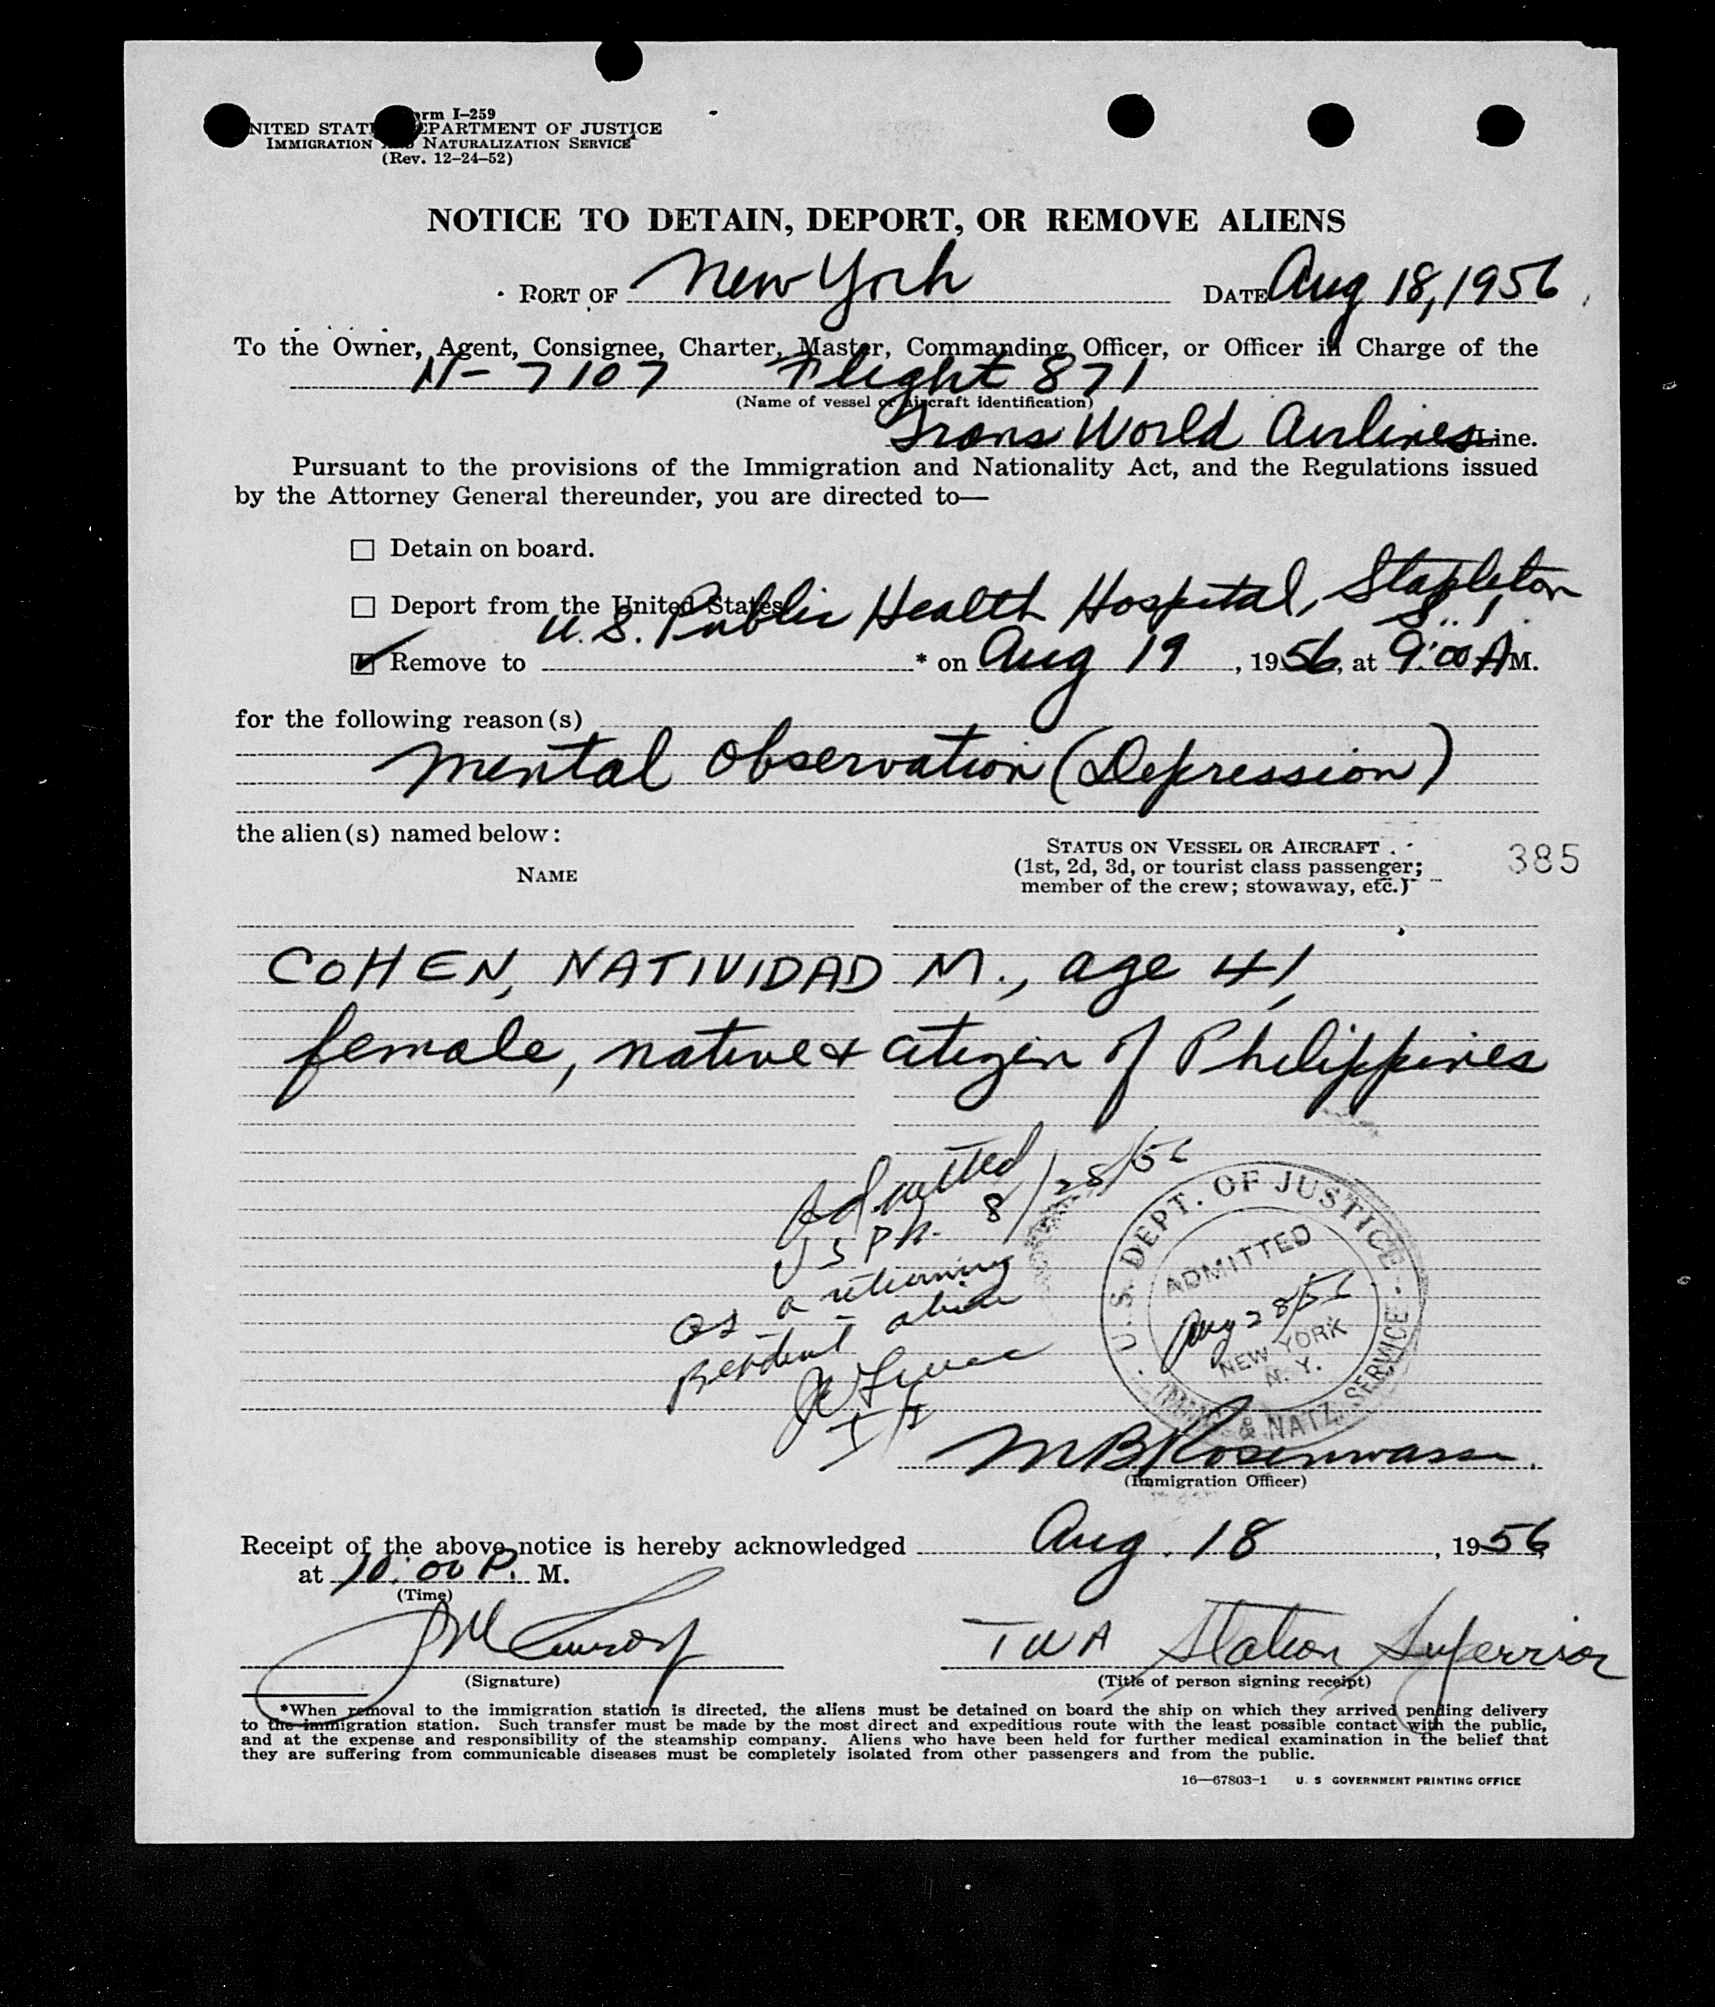 Form I-259
UNITED STATES DEPARTMENT OF JUSTICE
IMMIGRATION AND NATURALIZATION SERVICE
(Rev. 12-24-52)
NOTICE TO DETAIN, DEPORT, OR REMOVE ALIENS
PORT OF New York DATE Aug 18, 1956
To the Owner, Agent, Consignee, Charter, Master, Commanding Officer, or Officer in Charge of the
N-7107 Flight 871
(Name of vessel or aircraft identification)
Trans World Airlines Line.
Pursuant to the provisions of the Immigration and Nationality Act, and the Regulations issued
by the Attorney General thereunder, you are directed to—
☐ Detain on board.
☐ Deport from the United States.
U.S. Public Health Hospital, Stapleton
S.I.
☑ Remove to * on Aug 19, 1956, at 9:00 A M.
for the following reason(s)
Mental Observation (Depression)
the alien(s) named below:
NAME
STATUS ON VESSEL OR AIRCRAFT
(1st, 2d, 3d, or tourist class passenger;
member of the crew; stowaway, etc.)
385
COHEN, NATIVIDAD M., age 41,
female, native & citizen of Philippines
Admitted 8/28/56
USPH
as a returning
resident alien
I/I
U.S. DEPT. OF JUSTICE - IMMIG. & NATZ. SERVICE
ADMITTED
Aug 28/56
NEW YORK
N. Y.
MB Rosenwasser
(Immigration Officer)
Receipt of the above notice is hereby acknowledged Aug. 18, 1956,
at 10:00 P. M.
(Time)
TWA Station Supervisor
(Signature)
(Title of person signing receipt)
*When removal to the immigration station is directed, the aliens must be detained on board the ship on which they arrived pending delivery
to the immigration station. Such transfer must be made by the most direct and expeditious route with the least possible contact with the public,
and at the expense and responsibility of the steamship company. Aliens who have been held for further medical examination in the belief that
they are suffering from communicable diseases must be completely isolated from other passengers and from the public.
16—67803-1 U. S GOVERNMENT PRINTING OFFICE